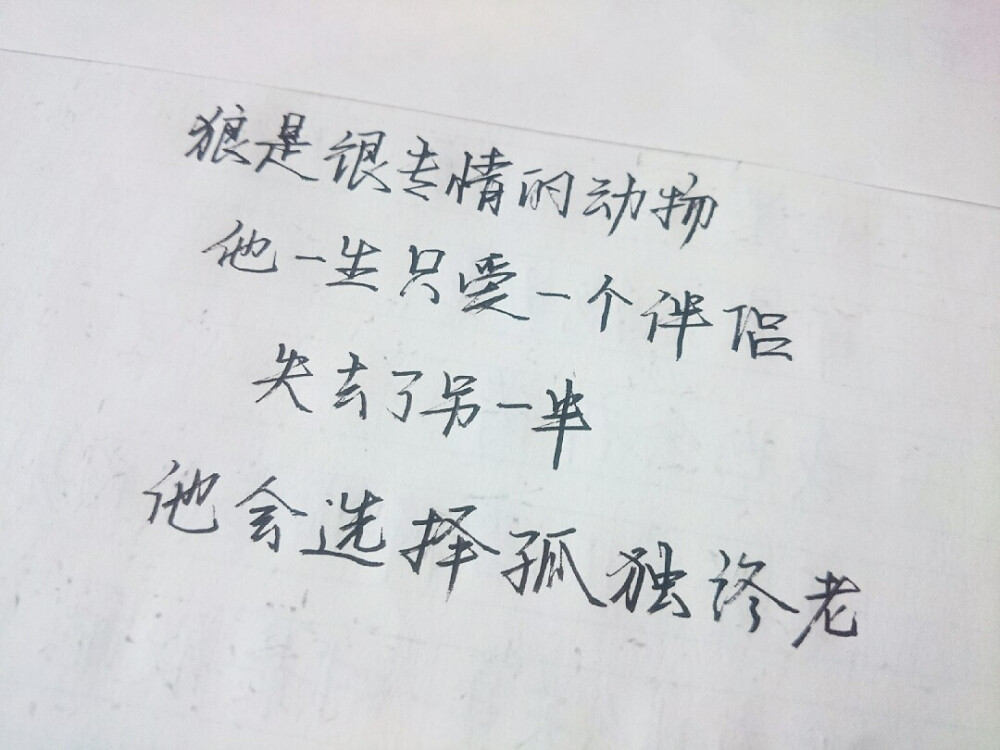 狼是很专情的动物
他一生只爱一个伴侣
失去了另一半
他会选择孤独终老